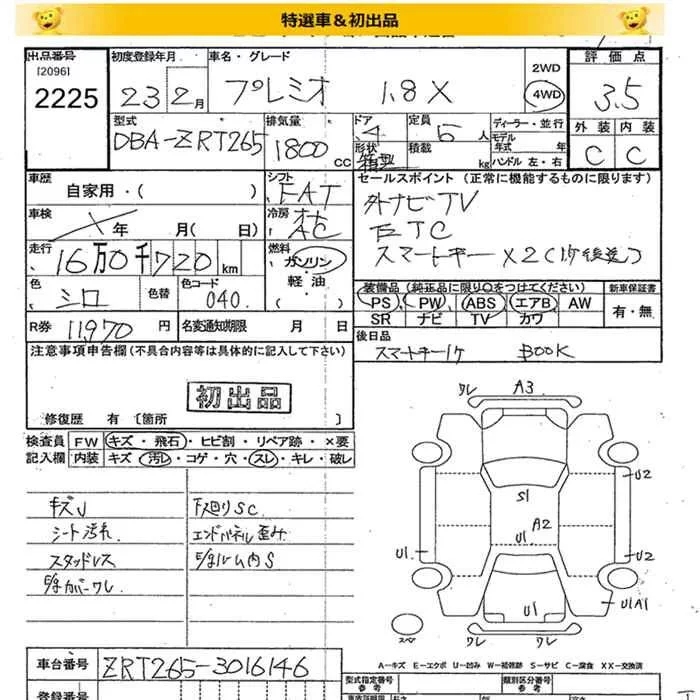 特選車＆初出品
出品番号
[2096]
2225
初度登録年月
23 2月
車名・グレード
プレミオ 1.8 X
2WD
4WD
評価点
3.5
外装 内装
C C
型式
DBA-ZRT265
排気量
1800 cc
ドア
4
形状
箱型
定員
5 人
積載
kg
ディーラー・並行
モデル
年式 年
ハンドル 左・右
車歴
自家用・( )
シフト
FAT
セールスポイント (正常に機能するものに限ります)
外ナビTV
ETC
スマートキー×2(1ケ後送)
車検
年 月( 日)
冷房
AC
走行
16万0千720km
燃料
ガソリン
軽油
色
シロ
色替
色コード
040.
装備品 (純正品に限り○をつけてください)
新車保証書
PS PW ABS エアB AW
SR ナビ TV カワ
有・無
R券 11,970 円
名変通知期限 月 日
後日品
スマートキー1ケ BOOK
注意事項申告欄(不具合内容等は具体的に記入して下さい)
初出品
修復歴 有 〔箇所
検査員
記入欄
FW キズ・飛石・ヒビ割・リペア跡・×要
内装 キズ・汚レ・コゲ・穴・スレ・キレ・破レ
キズU
シート汚れ
スタッドレス
カバーワレ
下廻りSC
エンドパネル歪み
ルーム内S
ワレ A3
U2
S1
A2
U1
U1
U2
U1
U1A1
スペ
ワレ ワレ
A－キズ E－エクボ U－凹み W－補修跡 S－サビ C－腐食 XX－交換済
車台番号
ZRT265-3016146
型式指定番号
参考
類別区分番号
参考
登録番号
長さ
高さ